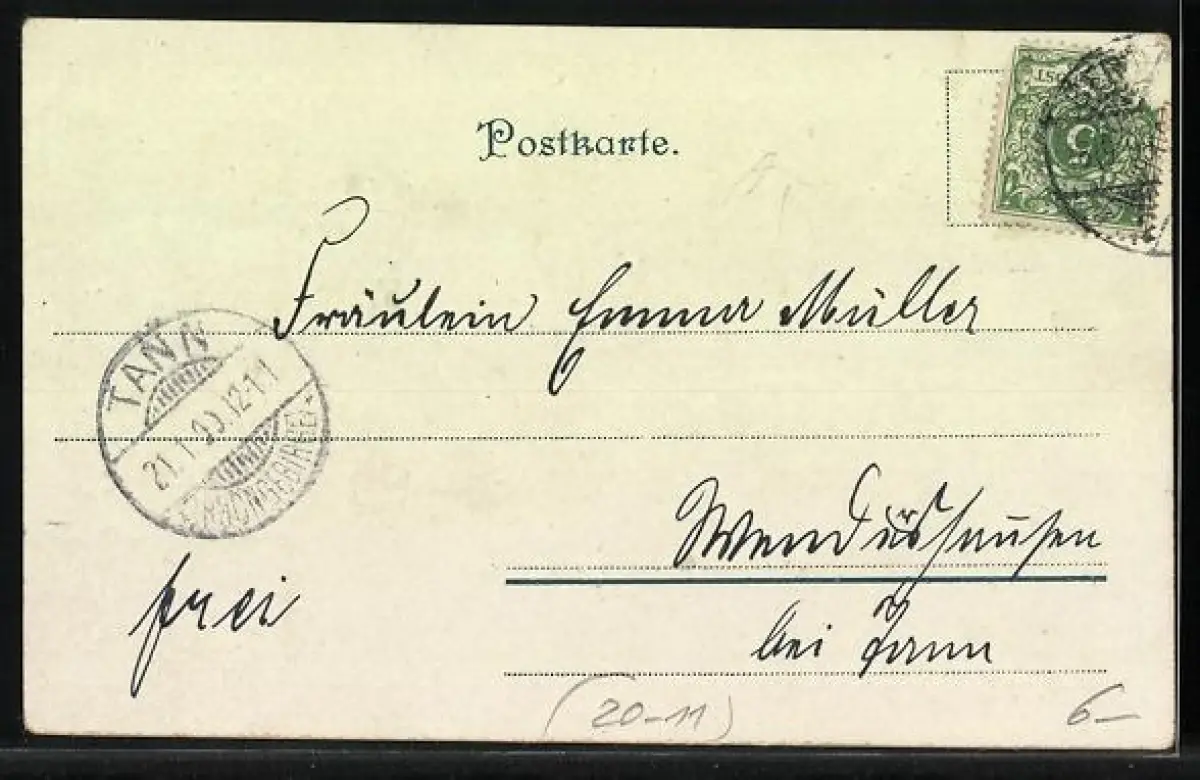 Postkarte.
5
Fräulein Emma Müller
TANN
21.1.00.12-1 N
(RHÖNGEBIRGE)
Wendershausen
bei Tann
frei
(20-11)
6-